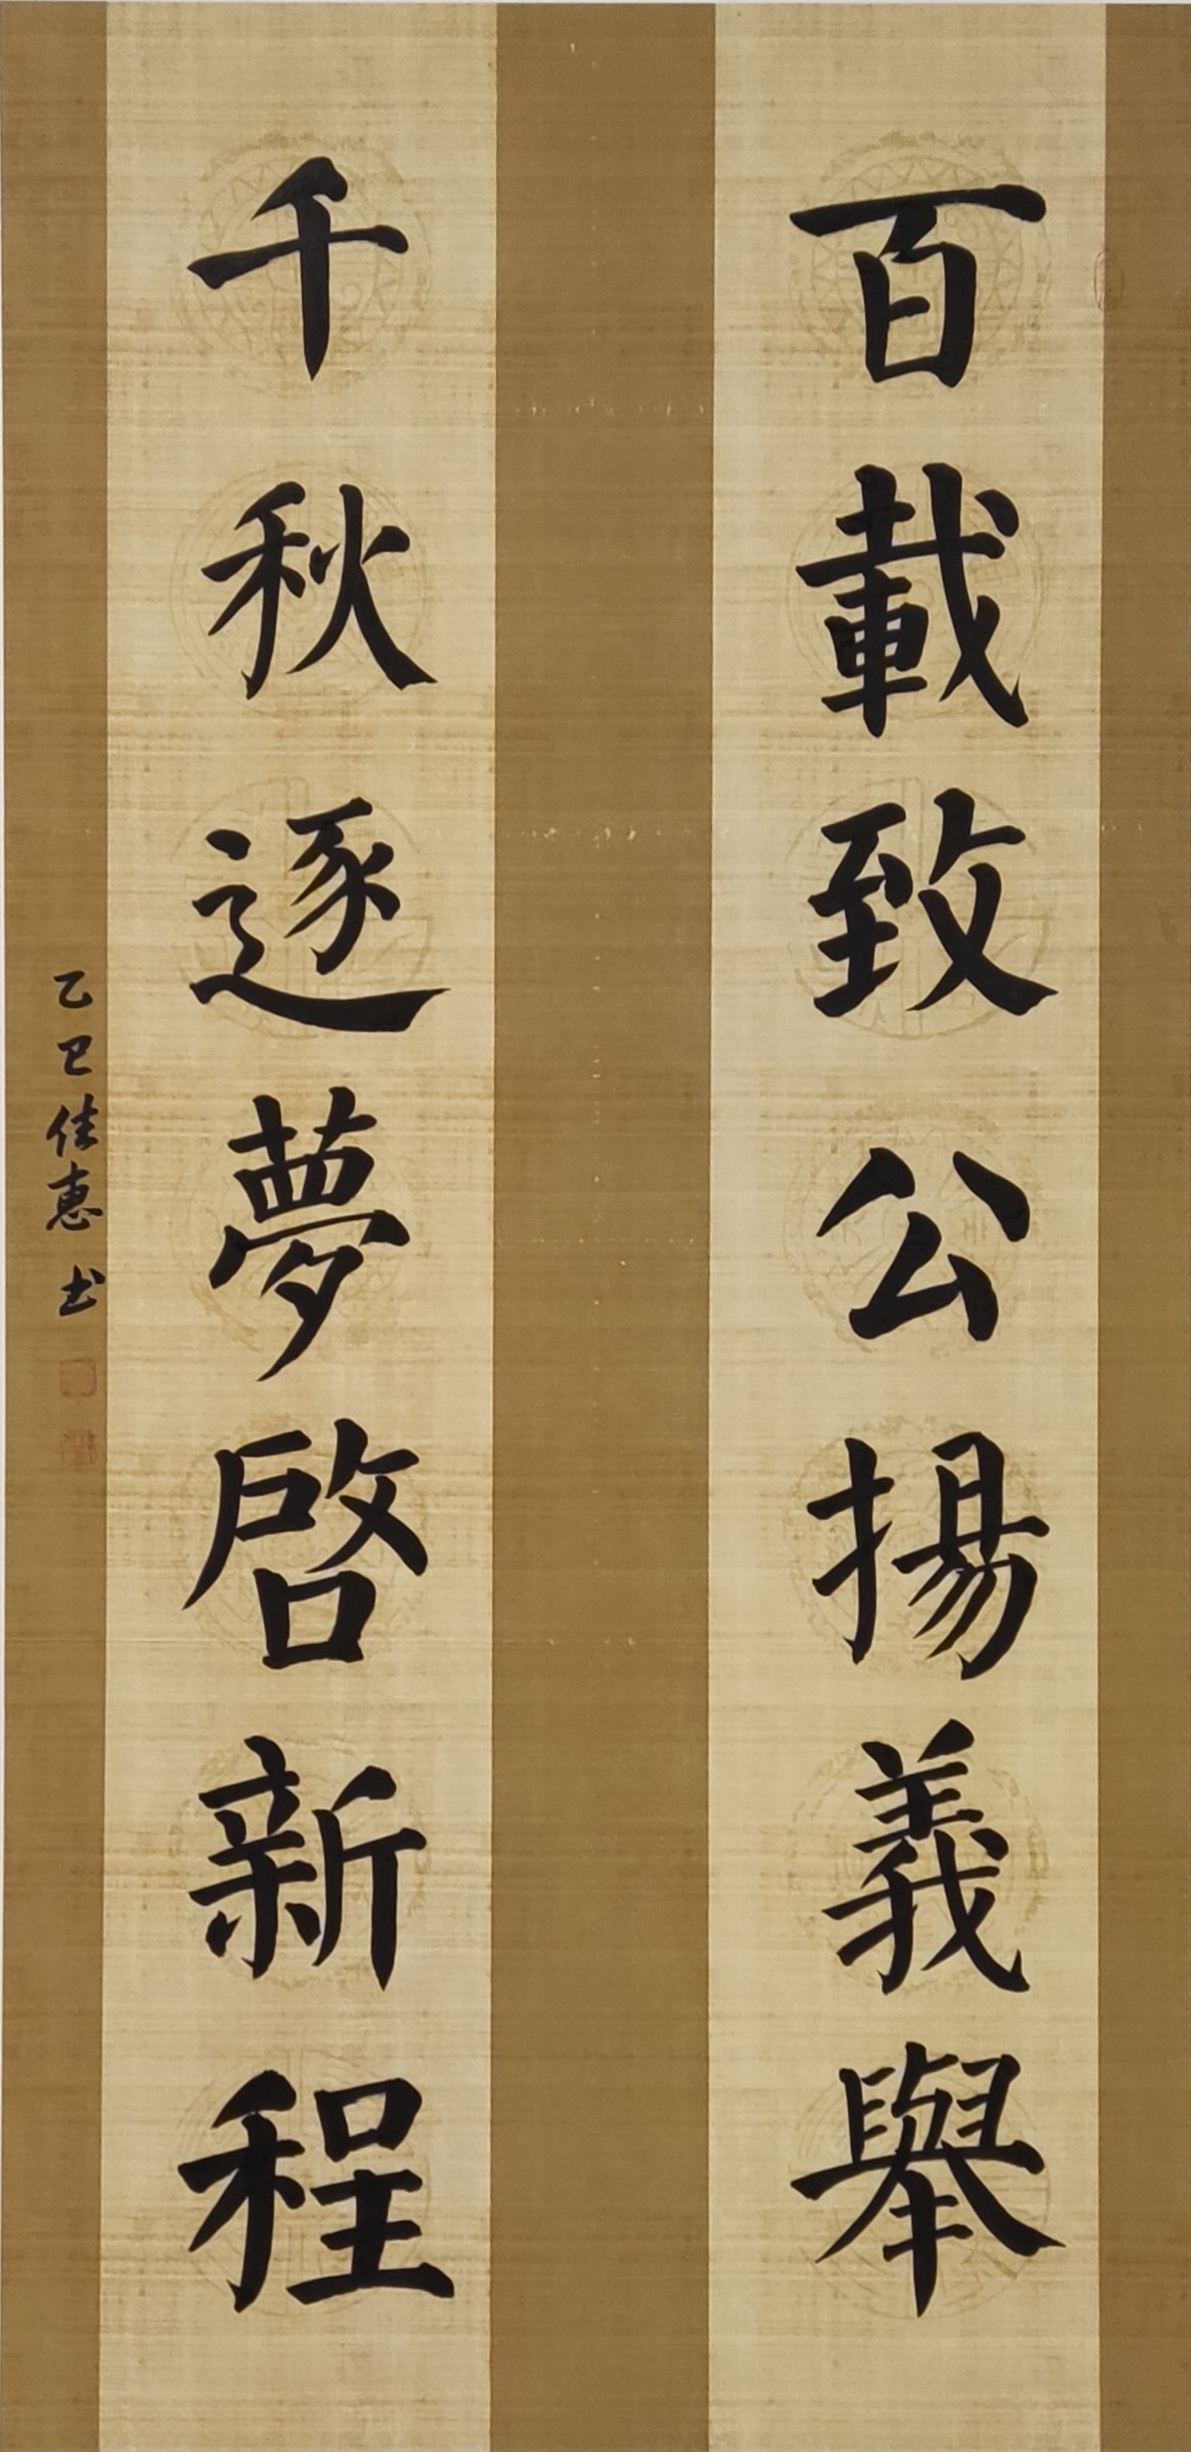 百載致公揚義舉
千秋逐夢啓新程
乙巳佳惠书